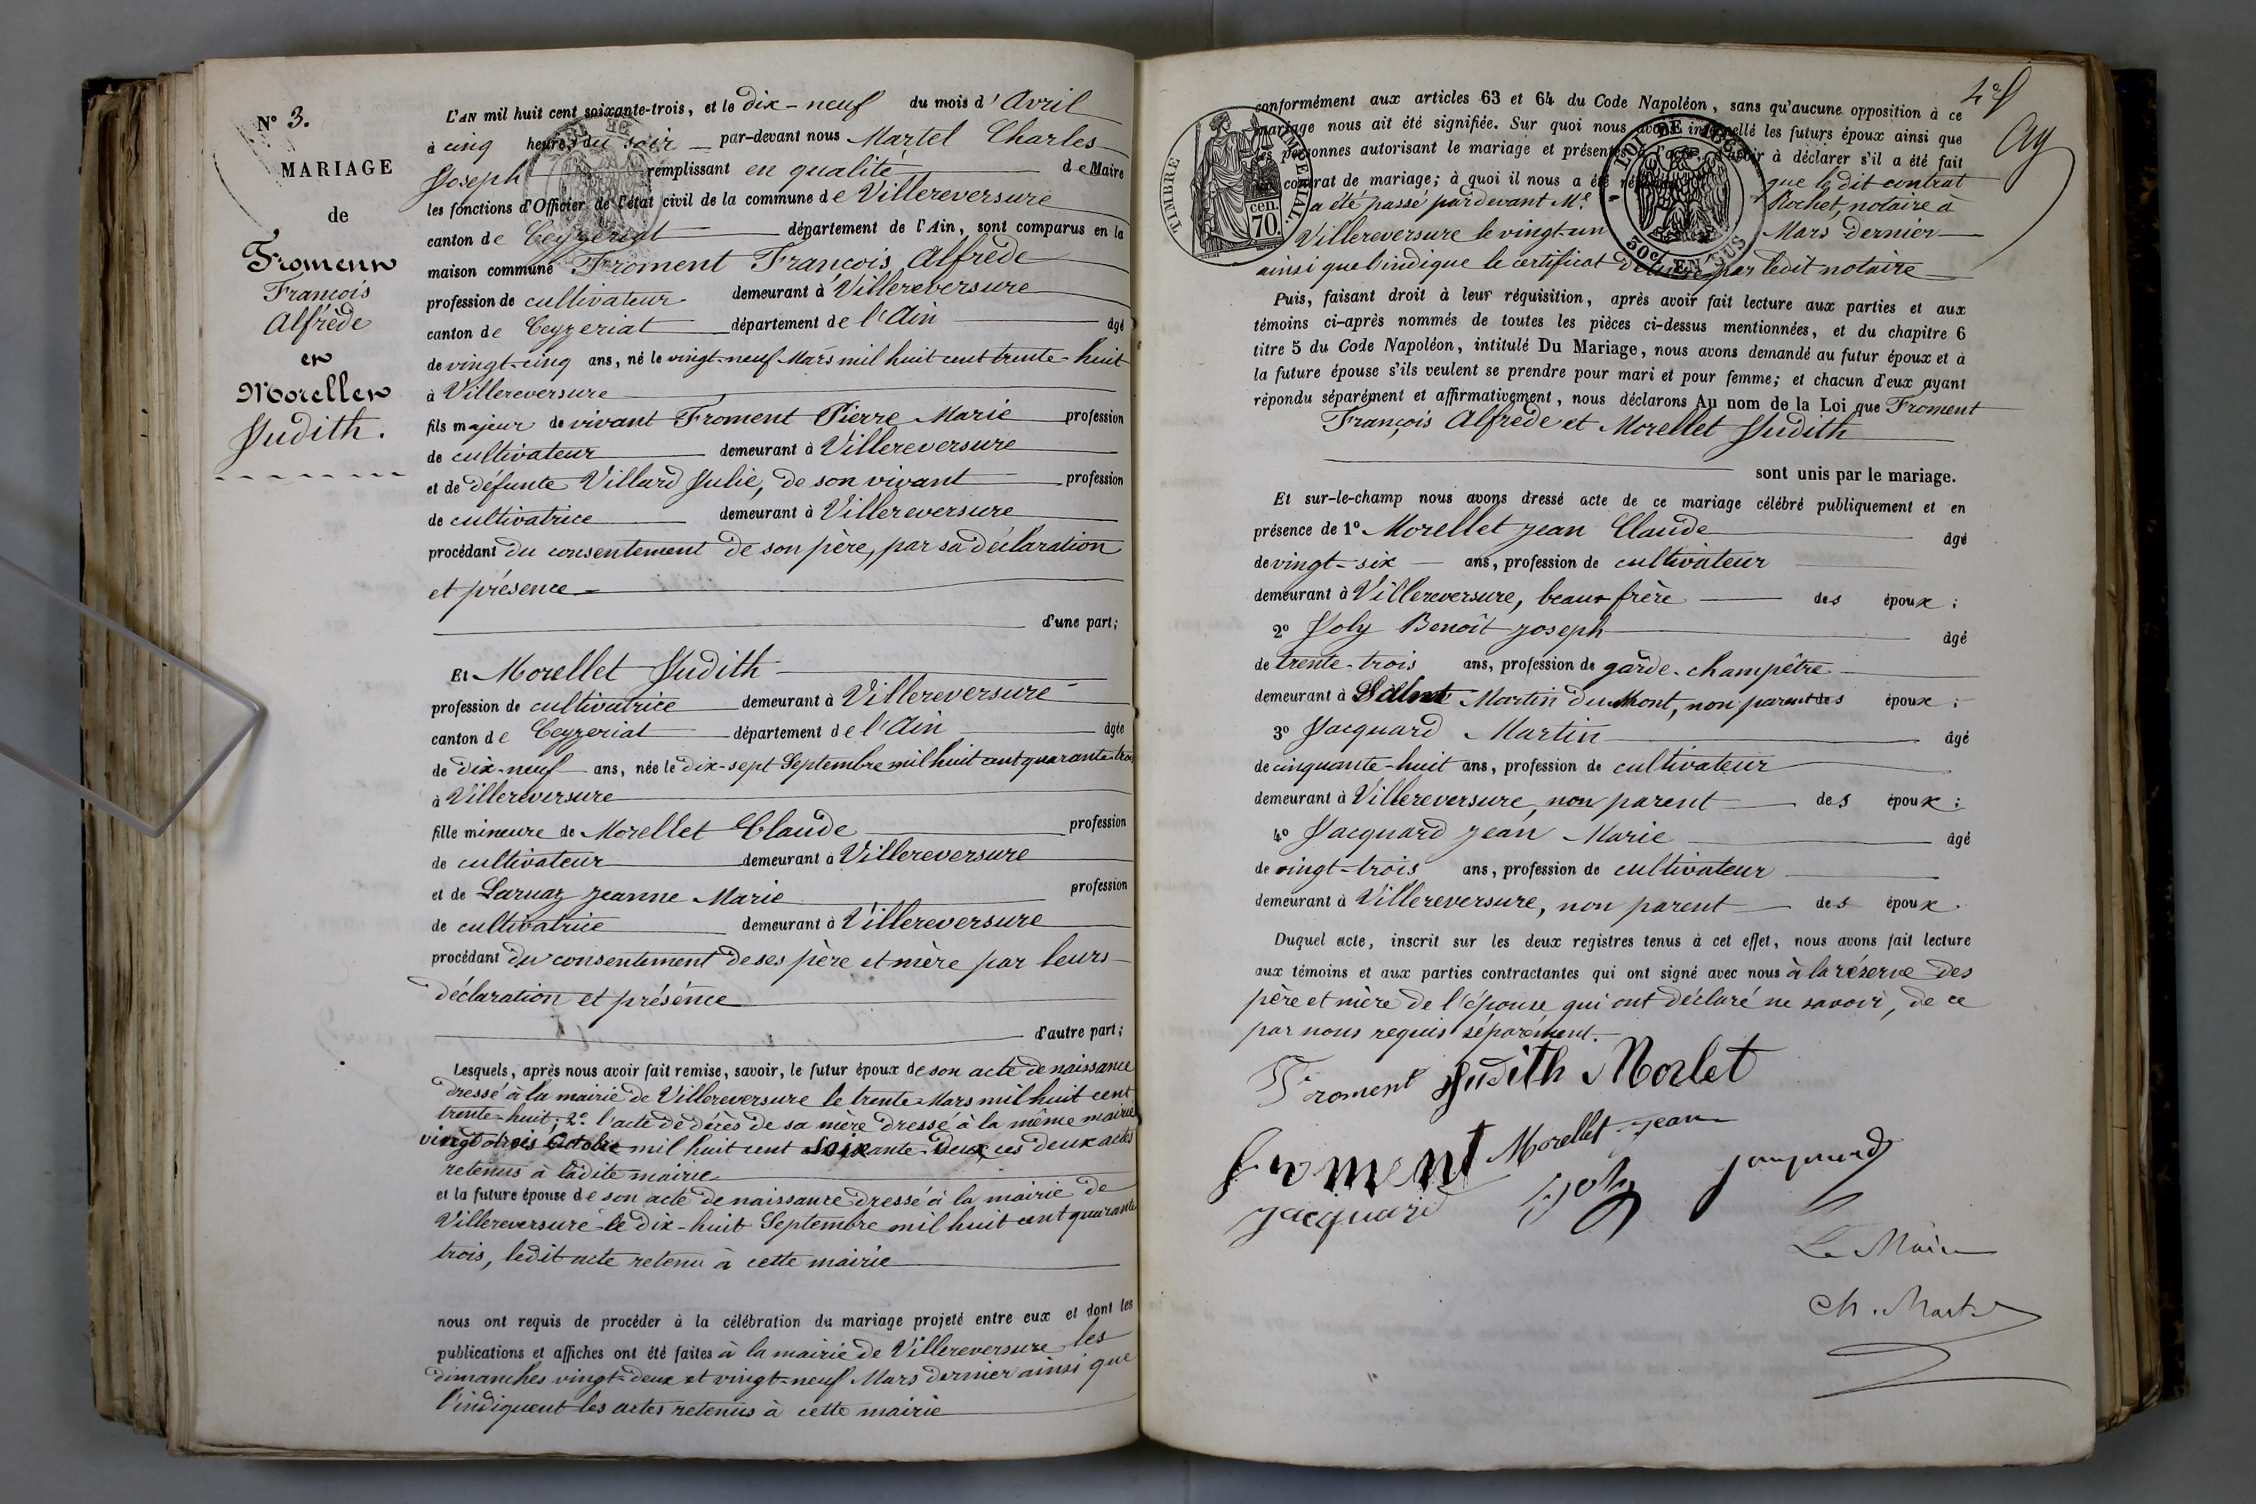 N° 3.
MARIAGE
de
Froment
François
Alfrède
et
Morellet
Judith.
L'AN mil huit cent soixante-trois, et le dix-neuf du mois d'Avril
à cinq heures du soir par-devant nous Martel Charles
Joseph remplissant en qualité de Maire
les fonctions d'Officier de l'état civil de la commune de Villereversure
canton de Ceyzeriat département de l'Ain, sont comparus en la
maison commune Froment François Alfrède
profession de cultivateur demeurant à Villereversure
canton de Ceyzeriat département de l'Ain âgé
de vingt-cinq ans, né le vingt-neuf Mars mil huit cent trente-huit
à Villereversure
fils majeur de vivant Froment Pierre Marie profession
de cultivateur demeurant à Villereversure
et de défunte Villard Julie, de son vivant profession
de cultivatrice demeurant à Villereversure
procédant du consentement de son père, par sa déclaration
et présence
d'une part;
Et Morellet Judith
profession de cultivatrice demeurant à Villereversure
canton de Ceyzeriat département de l'Ain âgée
de dix-neuf ans, née le dix-sept Septembre mil huit cent quarante-trois
à Villereversure
fille mineure de Morellet Claude profession
de cultivateur demeurant à Villereversure
et de Laruaz Jeanne Marie profession
de cultivatrice demeurant à Villereversure
procédant du consentement de ses père et mère par leurs
déclaration et présence
d'autre part;
Lesquels, après nous avoir fait remise, savoir, le futur époux de son acte de naissance
dressé à la mairie de Villereversure le trente Mars mil huit cent
trente-huit; 2° l'acte de décès de sa mère dressé à la même mairie
vingt-trois Octobre mil huit cent soixante-deux, ces deux actes
retenus à ladite mairie
et la future épouse de son acte de naissance dressé à la mairie de
Villereversure le dix-huit Septembre mil huit cent quarante
trois, ledit acte retenu à cette mairie
nous ont requis de procéder à la célébration du mariage projeté entre eux et dont les
publications et affiches ont été faites à la mairie de Villereversure les
dimanches vingt-deux et vingt-neuf Mars dernier ainsi que
l'indiquent les actes retenus à cette mairie
TIMBRE IMPÉRIAL.
cen.
70.
LOI DE
50c. EN SUS
conformément aux articles 63 et 64 du Code Napoléon, sans qu'aucune opposition à ce
mariage nous ait été signifiée. Sur quoi nous avons interpellé les futurs époux ainsi que
les personnes autorisant le mariage et présentes à l'acte, d'avoir à déclarer s'il a été fait
un contrat de mariage; à quoi il nous a été répondu que le dit contrat
a été passé pardevant Me Rochet, notaire à
Villereversure le vingt-un Mars dernier
ainsi que l'indique le certificat délivré par ledit notaire
Puis, faisant droit à leur réquisition, après avoir fait lecture aux parties et aux
témoins ci-après nommés de toutes les pièces ci-dessus mentionnées, et du chapitre 6
titre 5 du Code Napoléon, intitulé Du Mariage, nous avons demandé au futur époux et à
la future épouse s'ils veulent se prendre pour mari et pour femme; et chacun d'eux ayant
répondu séparément et affirmativement, nous déclarons Au nom de la Loi que Froment
François Alfrède et Morellet Judith
sont unis par le mariage.
Et sur-le-champ nous avons dressé acte de ce mariage célébré publiquement et en
présence de 1° Morellet Jean Claude âgé
de vingt-six ans, profession de cultivateur
demeurant à Villereversure, beau-frère des époux;
2° Joly Benoît Joseph âgé
de trente-trois ans, profession de garde-champêtre
demeurant à Saint Martin du Mont, non parent des époux;
3° Jacquard Martin âgé
de cinquante-huit ans, profession de cultivateur
demeurant à Villereversure, non parent des époux;
4° Jacquard Jean Marie âgé
de vingt-trois ans, profession de cultivateur
demeurant à Villereversure, non parent des époux.
Duquel acte, inscrit sur les deux registres tenus à cet effet, nous avons fait lecture
aux témoins et aux parties contractantes qui ont signé avec nous à la réserve des
père et mère de l'épouse qui ont déclaré ne savoir, de ce
par nous requis séparément.
Froment Judith Morlet
froment Morellet Jean
jacquard Joly jacquard
Le Maire
Ch. Martel